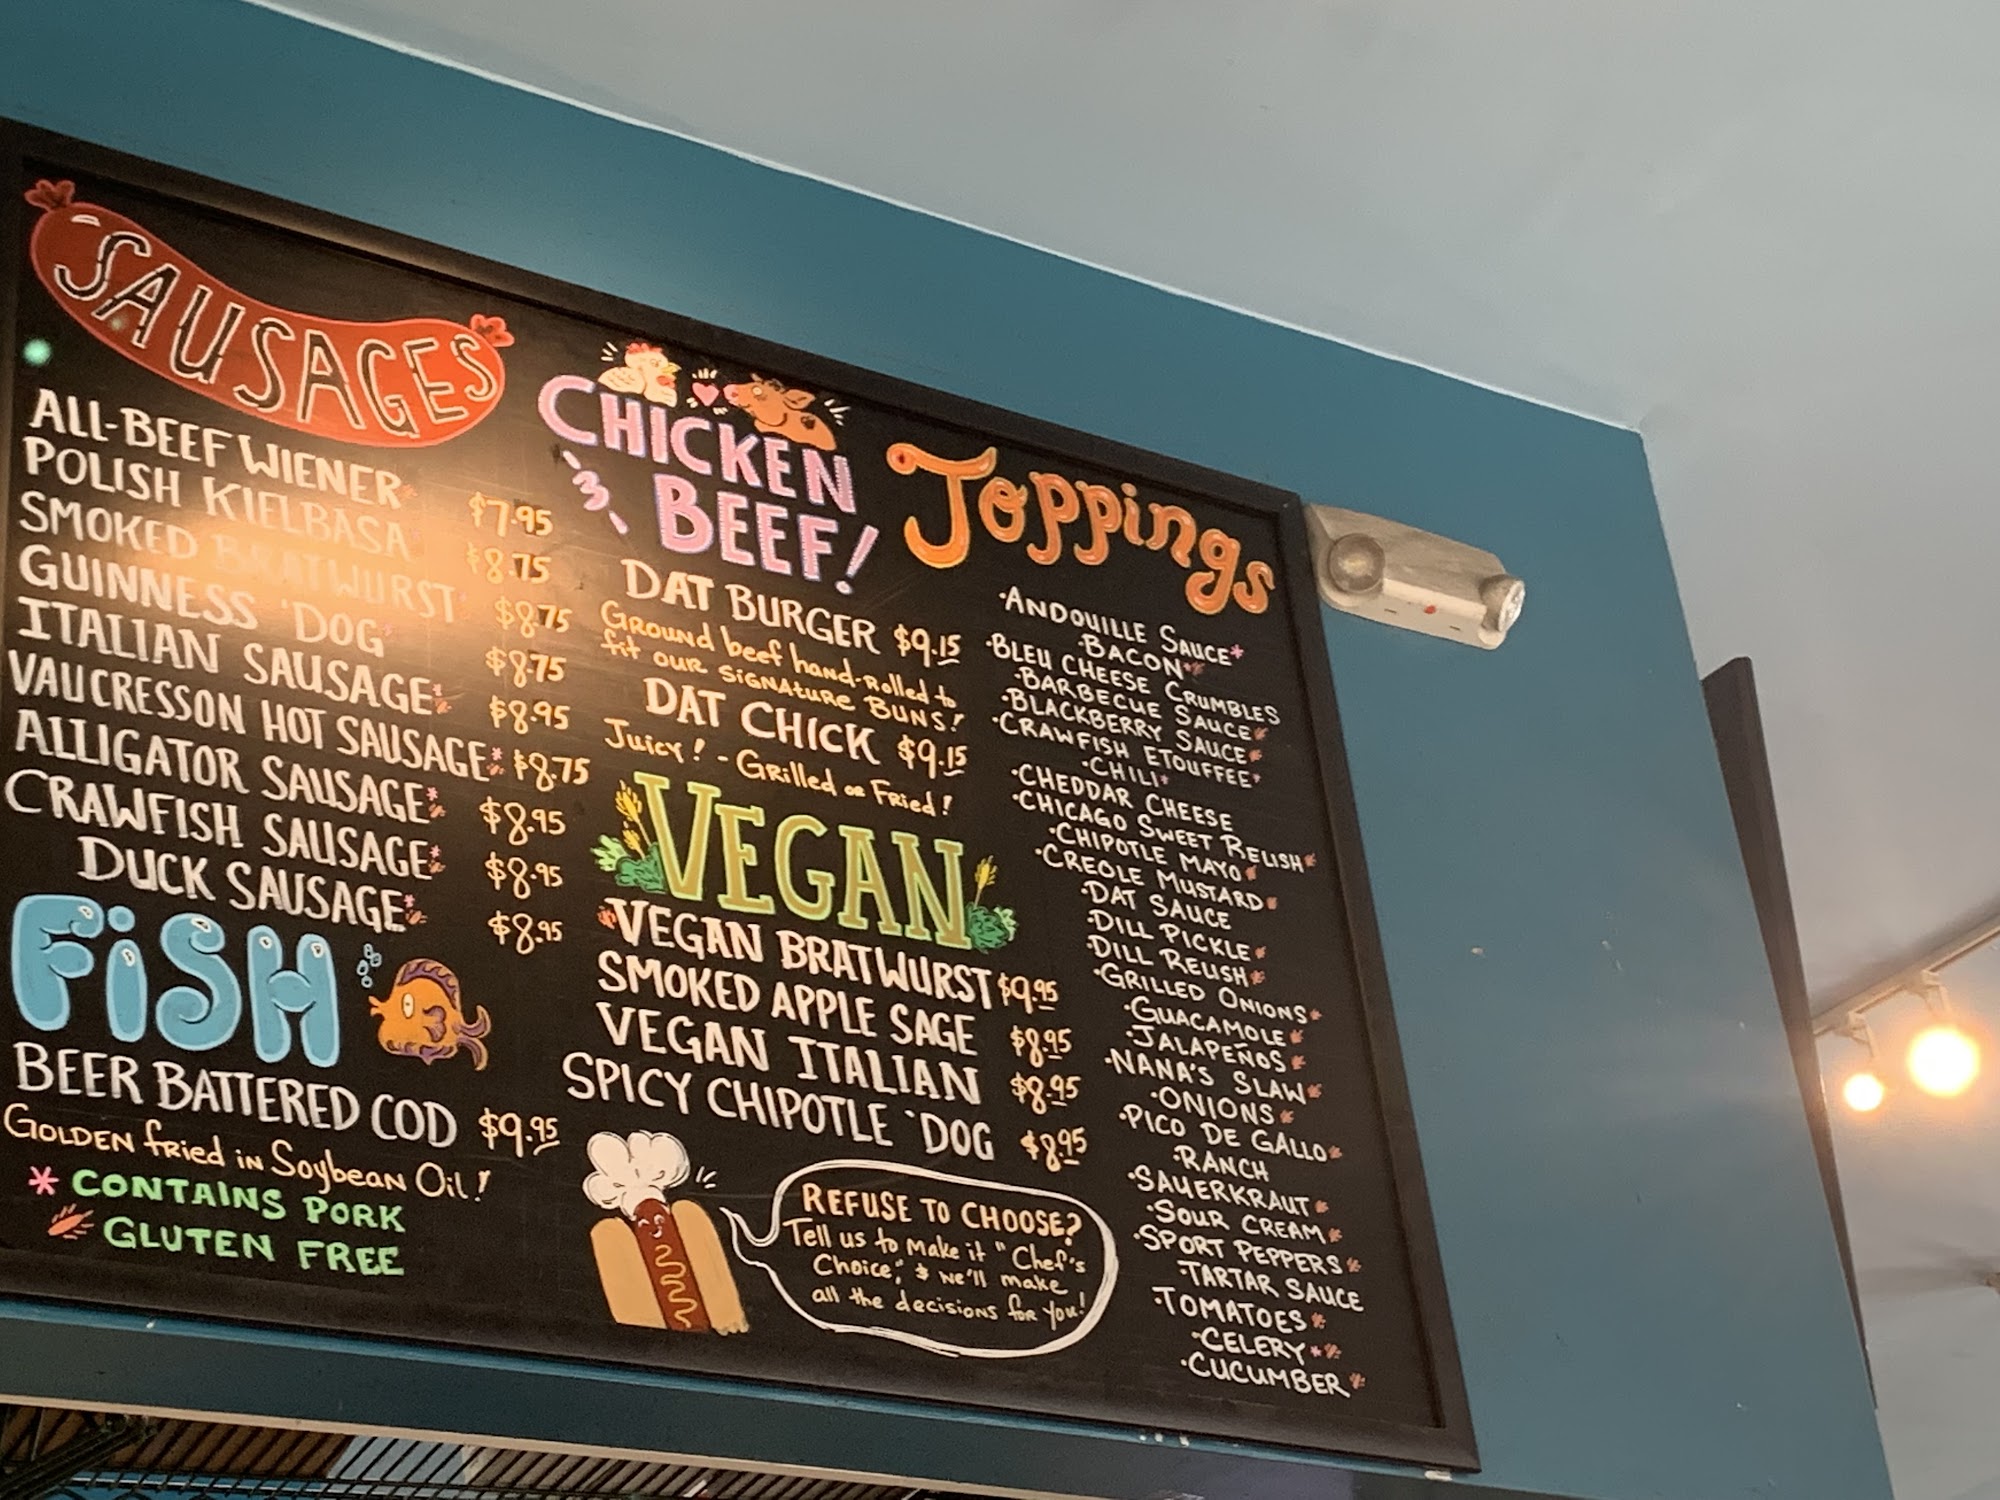 SAUSAGES
ALL-BEEF WIENER $7.95
POLISH KIELBASA $8.75
SMOKED BRATWURST $8.75
GUINNESS 'DOG $8.75
ITALIAN SAUSAGE $8.95
VAUCRESSON HOT SAUSAGE* $8.75
ALLIGATOR SAUSAGE* $8.95
CRAWFISH SAUSAGE* $8.95
DUCK SAUSAGE* $8.95
FiSH
BEER BATTERED COD $9.95
GOLDEN fried iN Soybean Oil!
* CONTAINS PORK
GLUTEN FREE
CHICKEN
& BEEF!
DAT BURGER $9.15
GROUND beef hand-Rolled to
fit OUR SiGNAtURE BUNS!
DAT CHICK $9.15
Juicy! - Grilled OR Fried!
VEGAN
VEGAN BRATWURST $9.95
SMOKED APPLE SAGE $8.95
VEGAN ITALIAN $8.95
SPICY CHIPOTLE 'DOG $8.95
REFUSE TO CHOOSE?
Tell us to make it "Chef's
Choice," & we'll make
all the decisions for you!
Toppings
·ANDOUILLE SAUCE*
·BACON*
·BLEU CHEESE CRUMBLES
·BARBECUE SAUCE
·BLACKBERRY SAUCE
·CRAWFISH ETOUFFEE*
·CHILI*
·CHEDDAR CHEESE
·CHICAGO SWEET RELISH
·CHIPOTLE MAYO
·CREOLE MUSTARD
·DAT SAUCE
·DILL PICKLE
·DILL RELISH
·GRILLED ONIONS
·GUACAMOLE
·JALAPEÑOS
·NANA'S SLAW
·ONIONS
·PICO DE GALLO
·RANCH
·SAUERKRAUT
·SOUR CREAM
·SPORT PEPPERS
·TARTAR SAUCE
·TOMATOES
·CELERY*
·CUCUMBER